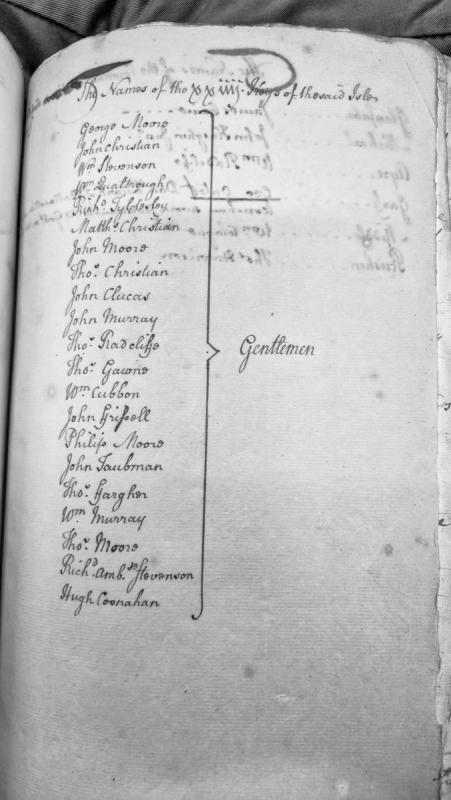 The Names of the xxiiij. Keys of the said Isle.
George Moore
John Christian
Wm Stevenson
Wm Quathrough
Richd. Tyldesley
Matthw. Christian
John Moore
Thos. Christian
John Clucas
John Murray
Thos. Radcliffe
Gentlemen
Thos. Gawne
Wm. Cubbon
John Frissell
Philip Moore
John Taubman
Thos. Gargher
Wm Murray
Thos. Moore
Richd. Ambse. Stevenson
Hugh Coonahan